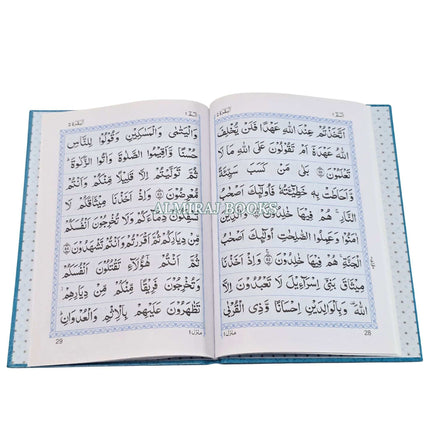 البقرة ٢
الٓمّٓ ١
اَتَّخَذْتُمْ عِنْدَ اللّٰهِ عَهْدًا فَلَنْ يُّخْلِفَ
اللّٰهُ عَهْدَهٗٓ اَمْ تَقُوْلُوْنَ عَلَى اللّٰهِ مَا لَا
تَعْلَمُوْنَ ۝ بَلٰى مَنْ كَسَبَ سَيِّئَةً
وَّاَحَاطَتْ بِهٖ خَطِيْٓـَٔتُهٗ فَاُولٰٓئِكَ اَصْحٰبُ
النَّارِ ۚ هُمْ فِيْهَا خٰلِدُوْنَ ۝ وَالَّذِيْنَ
اٰمَنُوْا وَعَمِلُوا الصّٰلِحٰتِ اُولٰٓئِكَ اَصْحٰبُ
الْجَنَّةِ ۚ هُمْ فِيْهَا خٰلِدُوْنَ ۝ وَاِذْ اَخَذْنَا
مِيْثَاقَ بَنِيْٓ اِسْرَآءِيْلَ لَا تَعْبُدُوْنَ اِلَّا
اللّٰهَ وَبِالْوَالِدَيْنِ اِحْسَانًا وَّذِى الْقُرْبٰى
منزل ١
28
البقرة ٢
الٓمّٓ ١
وَالْيَتٰمٰى وَالْمَسٰكِيْنِ وَقُوْلُوْا لِلنَّاسِ
حُسْنًا وَّاَقِيْمُوا الصَّلٰوةَ وَاٰتُوا الزَّكٰوةَ ۚ
ثُمَّ تَوَلَّيْتُمْ اِلَّا قَلِيْلًا مِّنْكُمْ وَاَنْتُمْ
مُّعْرِضُوْنَ ۝ وَاِذْ اَخَذْنَا مِيْثَاقَكُمْ لَا
تَسْفِكُوْنَ دِمَآءَكُمْ وَلَا تُخْرِجُوْنَ اَنْفُسَكُمْ
مِّنْ دِيَارِكُمْ ثُمَّ اَقْرَرْتُمْ وَاَنْتُمْ تَشْهَدُوْنَ ۝
ثُمَّ اَنْتُمْ هٰٓؤُلَآءِ تَقْتُلُوْنَ اَنْفُسَكُمْ
وَتُخْرِجُوْنَ فَرِيْقًا مِّنْكُمْ مِّنْ دِيَارِهِمْ
تَظٰهَرُوْنَ عَلَيْهِمْ بِالْاِثْمِ وَالْعُدْوَانِ
منزل ١
29
ALMIRAJ BOOKS